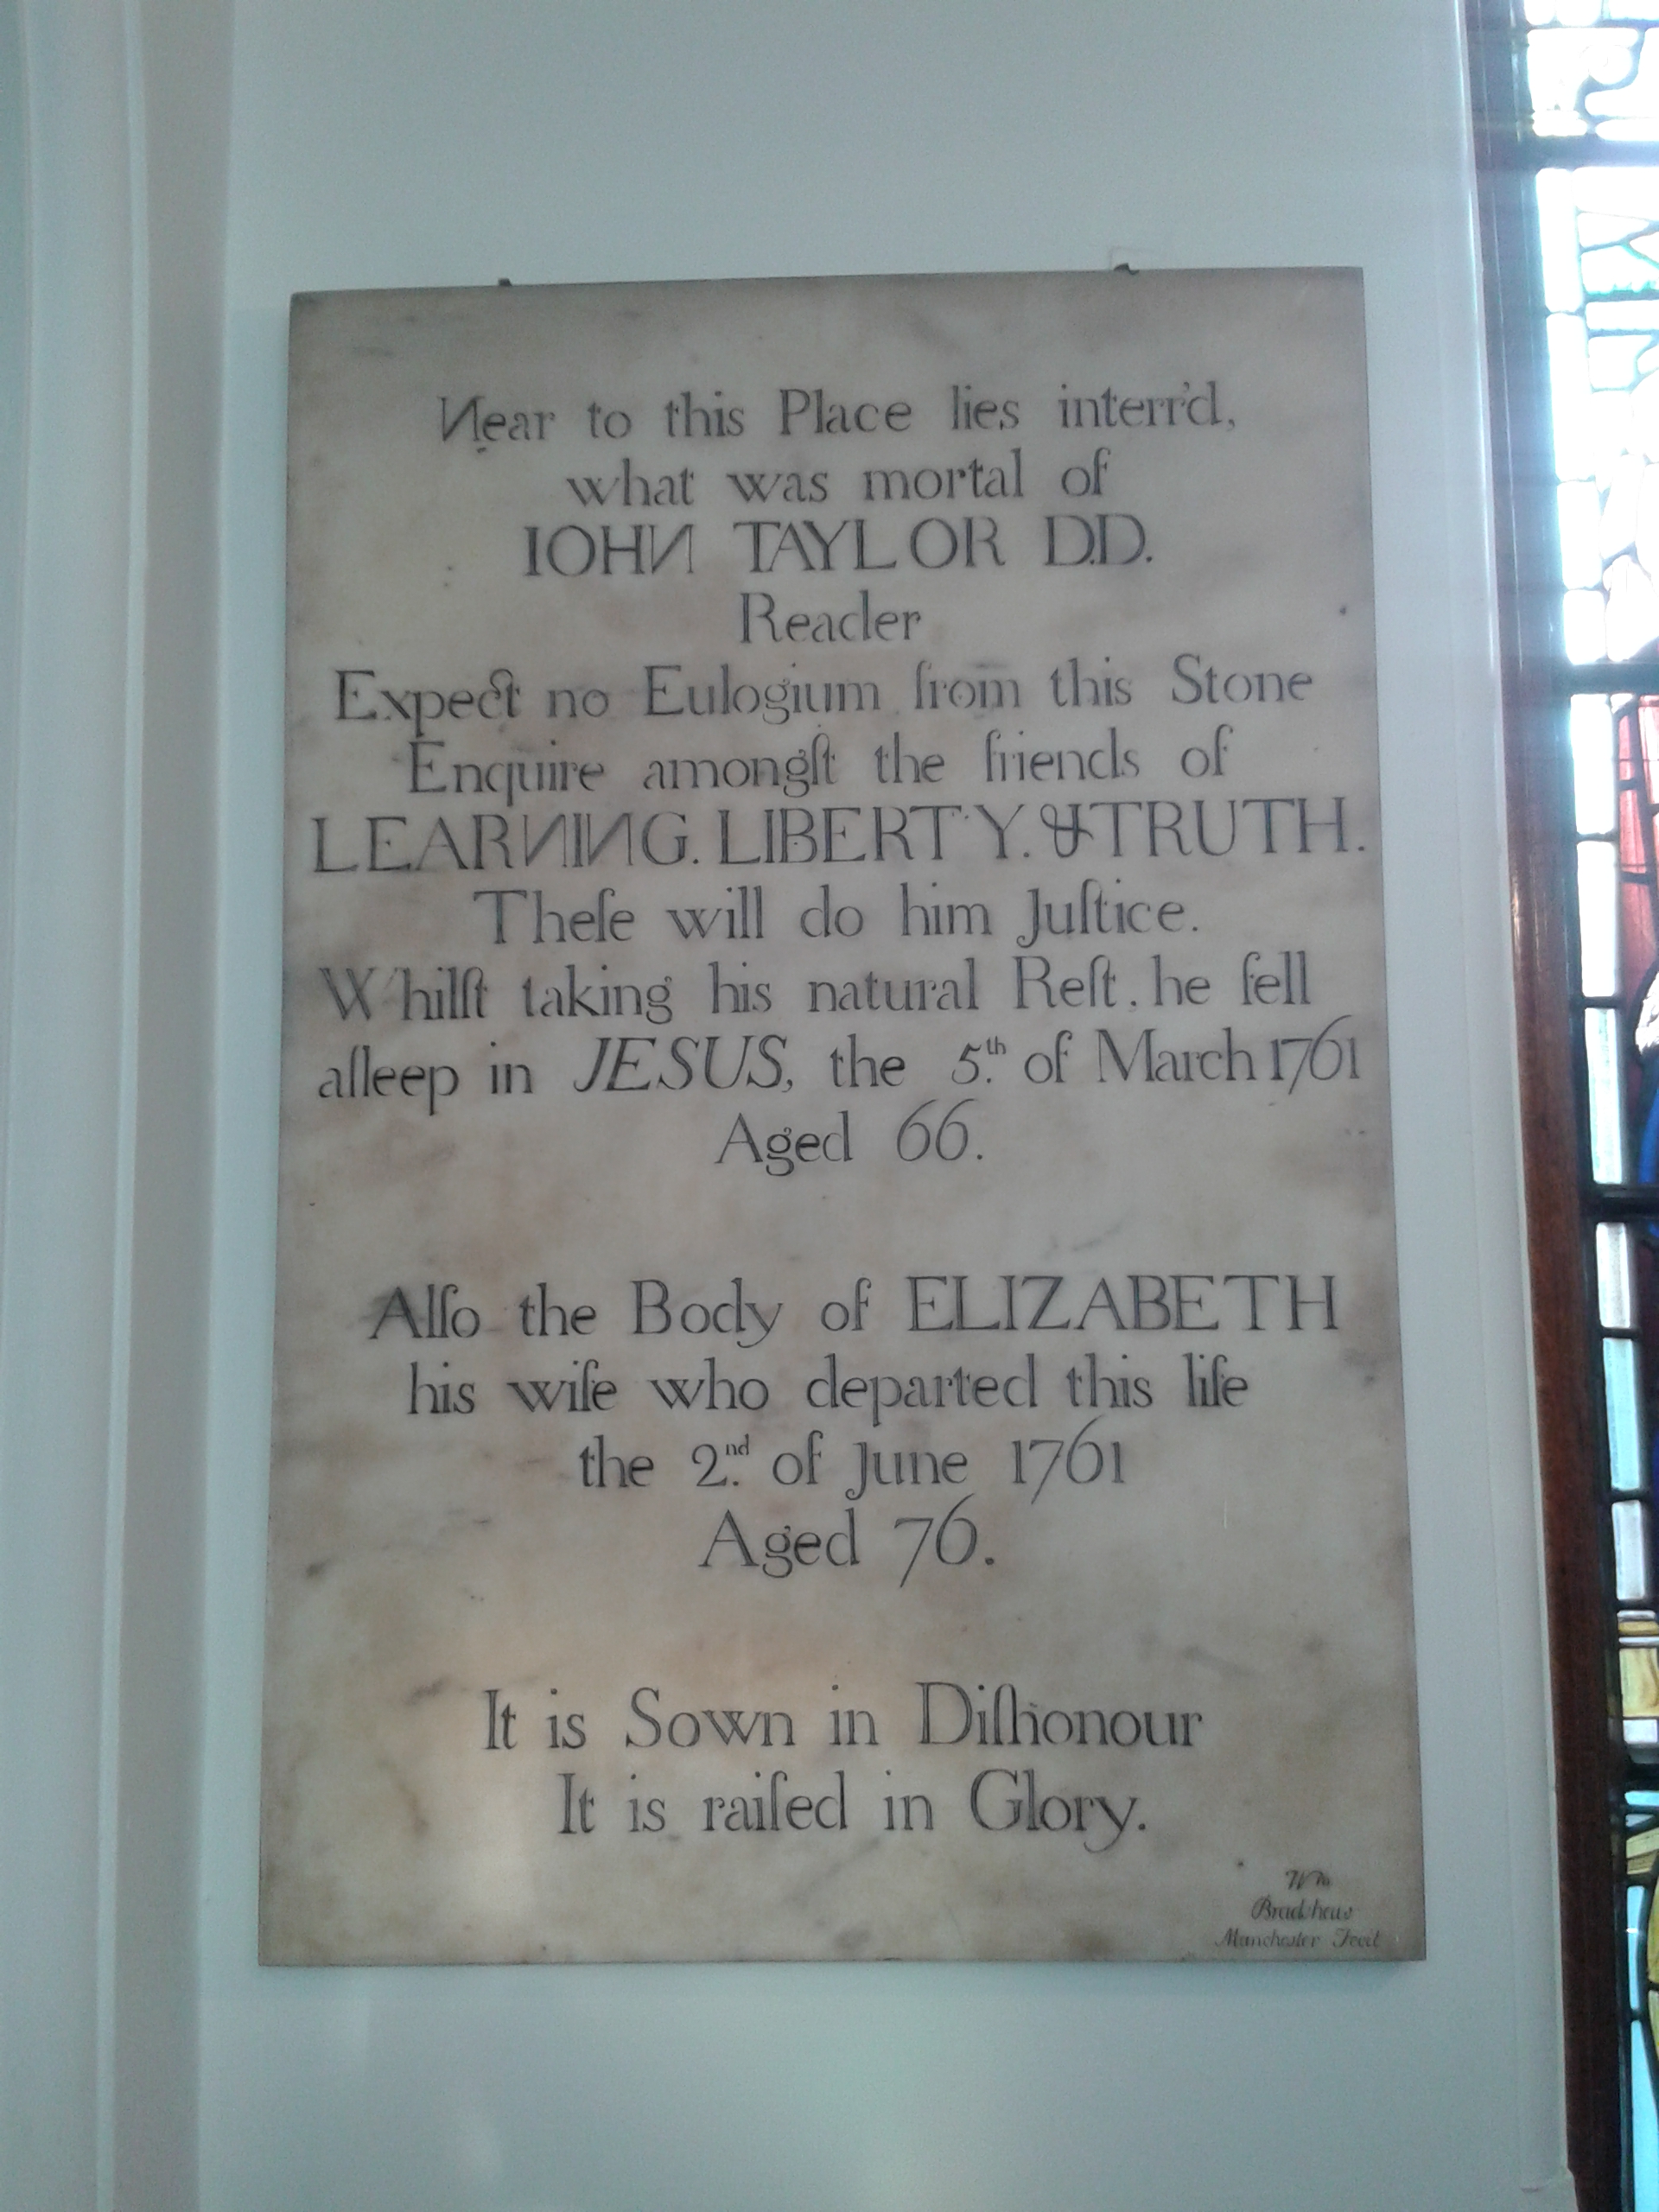 Near to this Place lies interr'd,
what was mortal of
IOHN TAYLOR D.D.
Reader
Expect no Eulogium from this Stone
Enquire amongſt the friends of
LEARNING. LIBERTY. & TRUTH.
Theſe will do him Juſtice.
Whilſt taking his natural Reſt, he fell
aſleep in JESUS, the 5.th of March 1761
Aged 66.
Alſo the Body of ELIZABETH
his wife who departed this life
the 2.nd of June 1761
Aged 76.
It is Sown in Diſhonour
It is raiſed in Glory.
Wm
Bradſhaw
Manchester Fecit